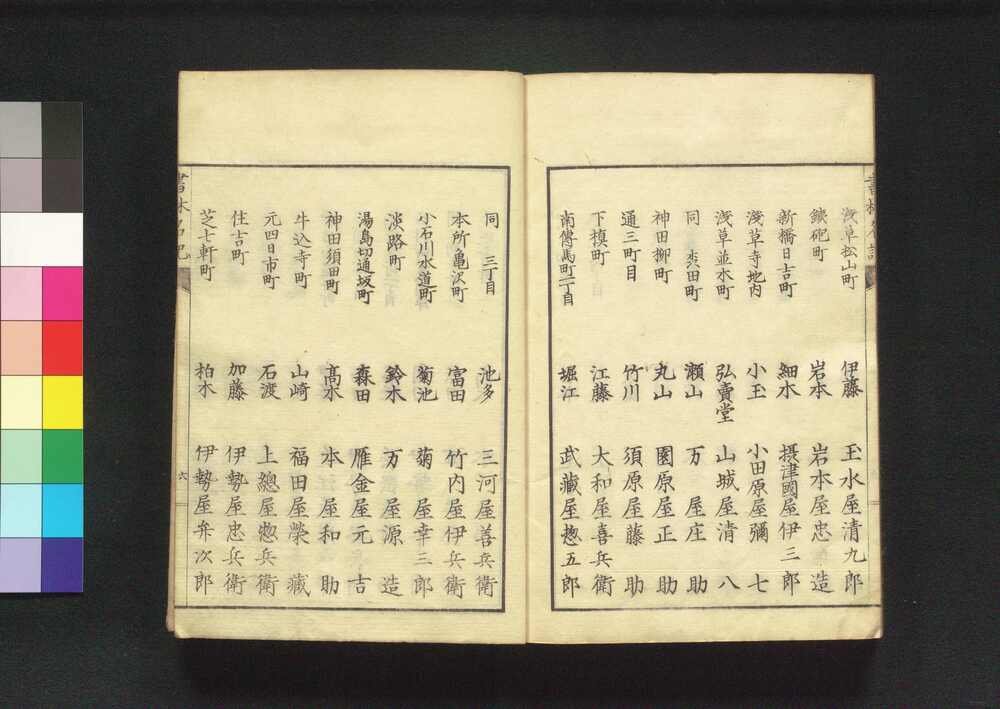 浅草松山町 伊藤 玉水屋清九郎
鉄砲町 岩本 岩本屋忠造
新橋日吉町 細水 摂津國屋伊三郎
淺草寺地内 小玉 小田原屋彌七
淺草並木町 弘賣堂 山城屋清八
同 町 瀬山 万屋庄助
神田柳町 丸山 園原屋正助
通三町目 竹川 須原屋藤助
下槙町 江藤 大和屋喜兵衛
南傳馬町二丁目 堀江 武藏屋惣五郎
同 三丁目 池多 三河屋善兵衛
本所亀沢町 富田 竹内屋伊兵衛
小石川水道町 菊池 菊屋幸三郎
淡路町 鈴木 万屋源造
湯島切通坂町 森田 雁金屋元吉
神田須田町 髙水 本屋和助
牛込寺町 山崎 福田屋榮藏
元四日市町 石渡 上總屋惣兵衛
住吉町 加藤 伊勢屋忠兵衛
芝七軒町 柏木 伊勢屋弁次郎
六